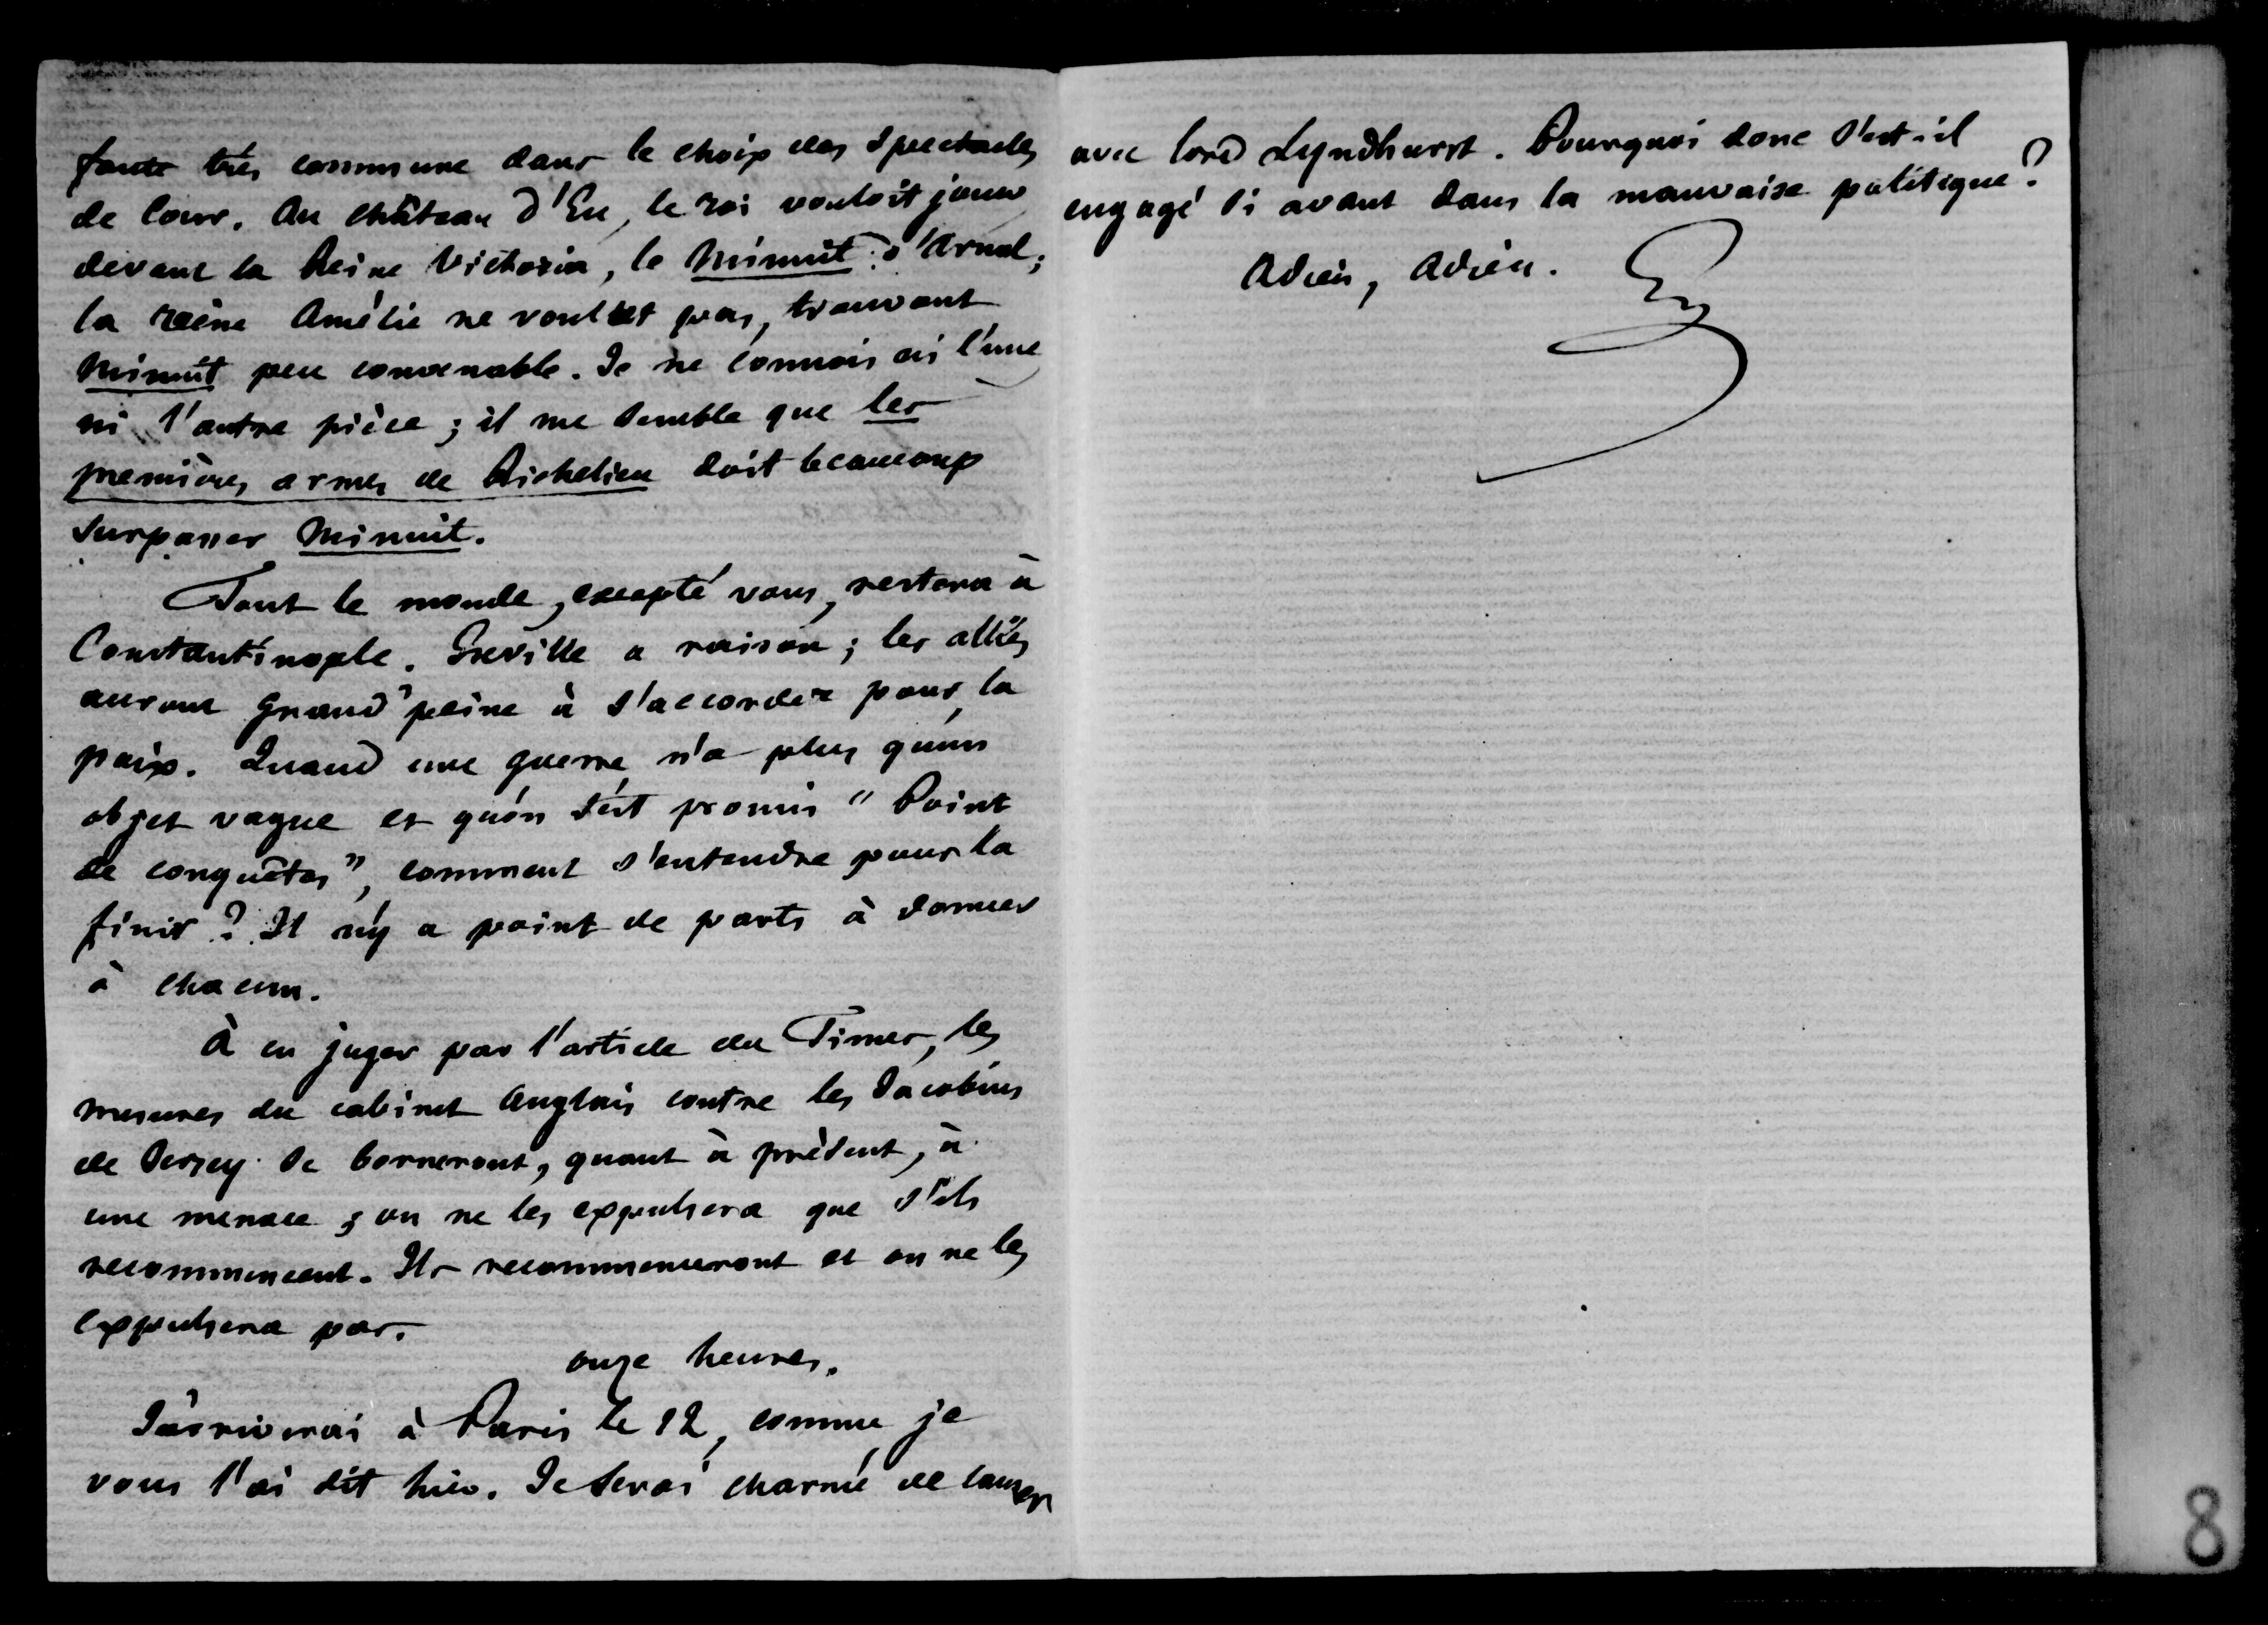 faute très commune dans le choix des spectacles
de Cour. Au château d'Eu, le roi vouloit jouer
devant la Reine Victoria, le Minuit d'Arnal;
la reine Amélie ne voulut pas, trouvant
Minuit peu convenable. Je ne connois ni l'une
ni l'autre pièce ; il me semble que les
premières armes de Richelieu doit beaucoup
surpasser Minuit.
Tout le monde, excepté vous, restera à
Constantinople. Greville a raison ; les alliés
auront grand'peine à s'accorder pour la
paix. Quand une guerre n'a plus qu'un
objet vague et qu'on s'est promis " Point
de conquêtes", comment s'entendre pour la
finir ? Il n'y a point de parts à donner
à chacun.
À en juger par l'article du Times, les
mesures du cabinet Anglais contre les Jacobins
de Jersey se borneront, quant à présent, à
une menace ; on ne les expulsera que s'ils
recommencent. Ils recommenceront et on ne les
expulsera pas.
onze heures.
J'arriverai à Paris le 12, comme je
vous l'ai dit hier. Je serai charmé de causer
avec lord Lyndhurst. Pourquoi donc s'est-il
engagé si avant dans la mauvaise politique ?
Adieu, Adieu.
8